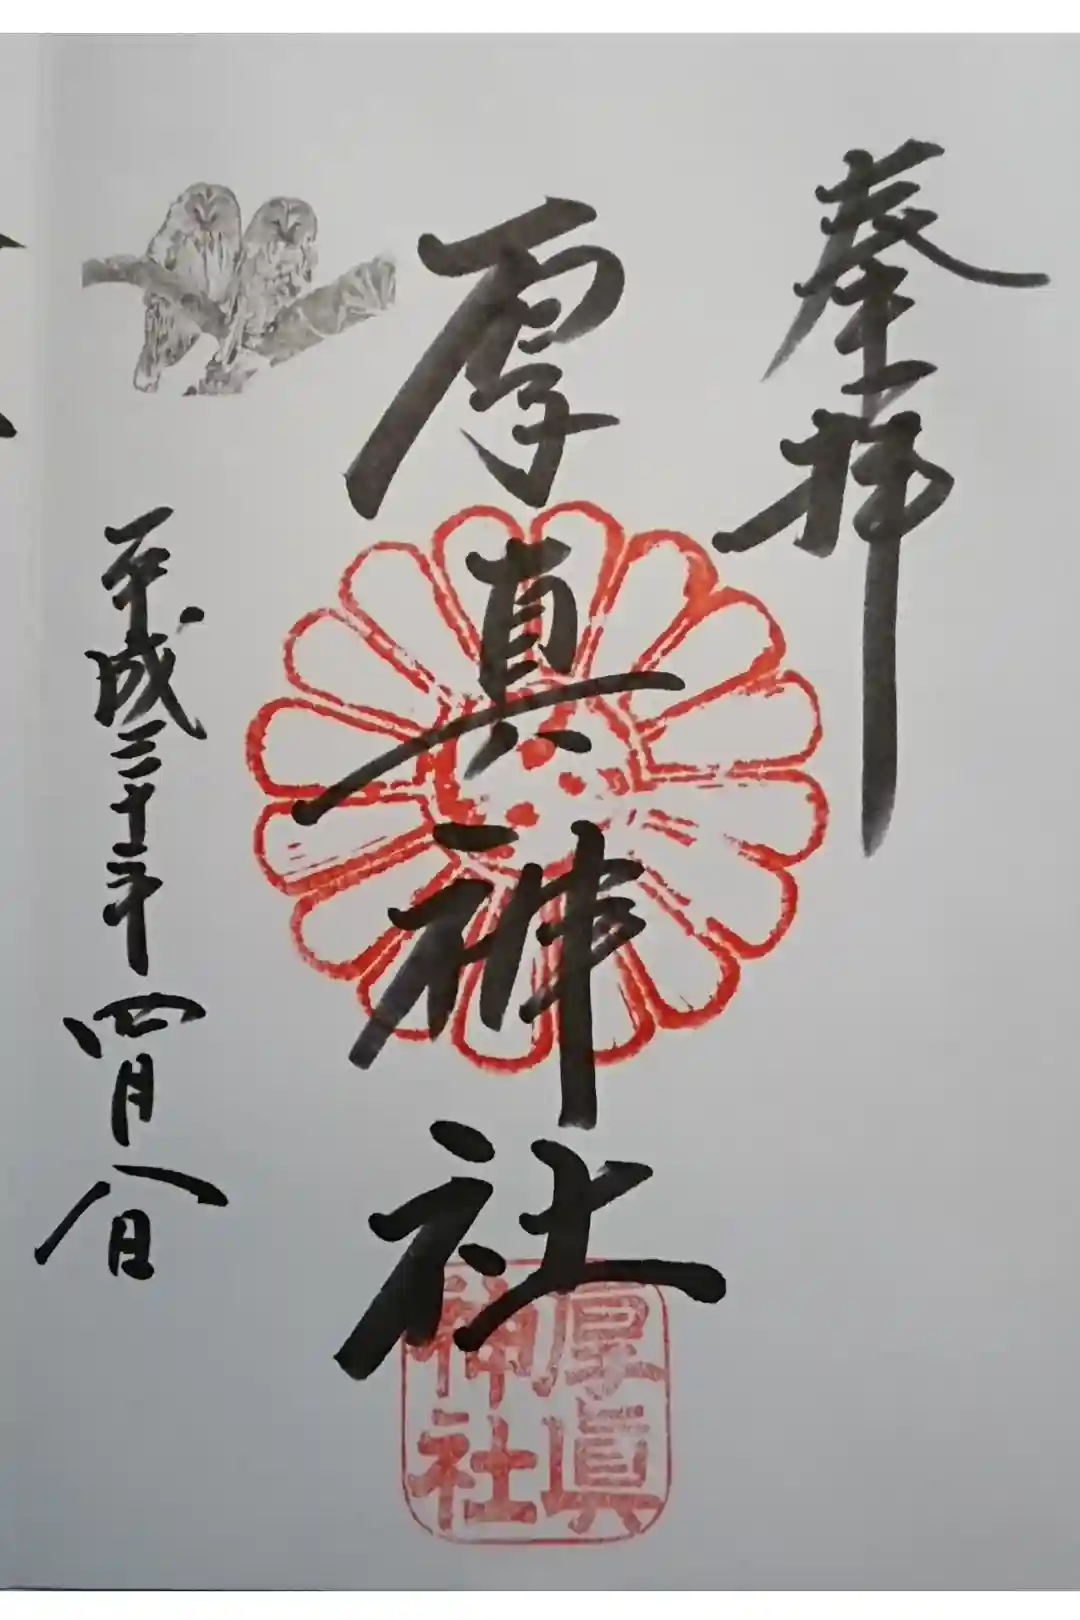 奉拝
厚真神社
厚眞
神社
平成三十年四月八日